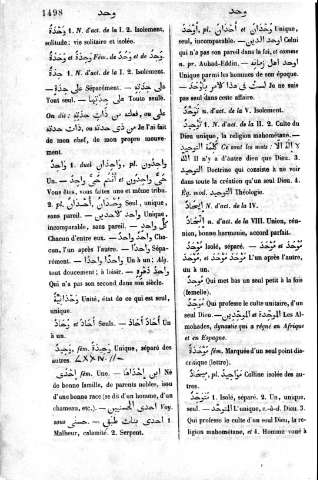 1498
وحد
وَحْدَةٌ n. d'act. de la I. 2. Isolement,
solitude; vie solitaire et isolée.
وَحِدَةٌ Fém. de وَحْدٌ et de وَحِدٌ.
حِدَةٌ 1. N. d'act. de la I. 2. Isolement.
— على حِدَةٍ Séparément. — على حِدَتِهِ
Tout seul. — على حِدَتِهَا Toute seule.
On dit: من ذات حدتى فعلته, ou على
ذات حدتى, ou من ذى حدتى Je l'ai fait
de mon chef, de mon propre mouve-
ment.
وَاحِدٌ 1. duel وَاحِدَانِ, pl. وَاحِدُونَ
Un. — أنتم حىّ واحد et حىّ واحدون
Vous êtes, vous faites une et même tribu.
2. pl. وُحْدَانٌ, أُحْدَانٌ Seul, unique,
sans pareil. — واحد Unique,
incomparable, sans pareil. — كلّ واحد
Chacun d'entre eux. — واحدًا واحدًا Cha-
cun, l'un après l'autre. — Séparé-
ment. — واحدًا واحدًا Un à un; Alg.
tout doucement; à loisir. — واحد دهره
Qui n'a pas son second dans son siècle.
وَحْدَانِيَّةٌ Unité, état de ce qui est seul,
unique.
وُحَادَ et أُحَادَ Seuls. — أُحَادَ أُحَادَ Un
à un.
وَحِيدٌ, fém. وَحِيدَةٌ Unique, séparé des
autres.
إِحْدَى fém. Une. — ابن إحداها Né
de bonne famille, de parents nobles, issu
d'une bonne race (se dit d'un homme, d'un
chameau, etc.). — احدى الحسنيين Voy.
sous حسنى. — احدى بنات طبق 1.
Malheur, calamité. 2. Serpent.
وحد
أَوْحَدُ, pl. أُحْدَانٌ et وُحْدَانٌ Unique,
seul, incomparable. — اوحد الدين Celui
qui n'a pas son pareil dans la foi, et comme
n. pr. Auhad-Eddin. — اوحد اهل زمانه
Unique parmi les hommes de son époque.
— لست فى هذا الامر بأوحد Je ne suis
pas seul dans cette affaire.
تَوَحُّدٌ n. d'act. de la V. Isolement.
تَوْحِيدٌ 1. N. d'act. de la II. 2. Culte du
Dieu unique, la religion mahométane. —
كلمة التوحيد Ce sont les mots: لا اله الا
الله Il n'y a d'autre dieu que Dieu. 3.
التوحيد Doctrine qui consiste à ne voir
dans toute création qu'un seul Dieu. 4.
Eg. mod. التوحيد Théologie.
إِيحَادٌ N. d'act. de la IV.
اِتِّحَادٌ N. d'act. de la VIII. Union, réu-
nion, bonne harmonie, accord parfait.
مُوَحَّدٌ Isolé, séparé. — مَوْحَدٌ et مَوْحَدَ
مَوْحَدَ مَوْحَدَ et L'un après l'au-
tre, un à un.
مُوحِدٌ Qui met bas un seul petit à la fois
(femelle).
مُوَحِّدٌ Qui professe le culte unitaire, d'un
seul Dieu. — الموحدون et الموحدين Les Al-
mohades, dynastie qui a régné en Afrique
et en Espagne.
مُوَحَّدَةٌ fém. Marquée d'un seul point dia-
critique (lettre).
مِيحَادٌ, pl. مَوَاحِيدُ Colline isolée des au-
tres.
مُتَوَحِّدٌ 1. Isolé, séparé. 2. Un, unique,
seul. — المتوحد L'unique, c.-à-d. Dieu. 3.
Qui professe le culte d'un seul Dieu, la re-
ligion mahométane, et 4. Homme voué à